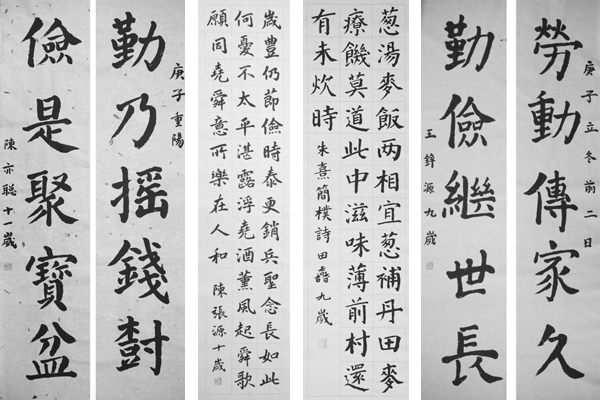 勞動傳家久
庚子立冬前二日
勤儉繼世長
王鋅源九歲
葱湯麥飯两相宜葱補丹田麥
療饑莫道此中滋味薄前村還
有未炊時 朱熹簡樸詩 田 九歲
歲豐仍節儉時泰更銷兵聖念長如此
何憂不太平湛露浮堯酒薰風起舜歌
願同堯舜意所樂在人和 陳張源十歲
勤乃摇錢樹
庚子重陽
儉是聚寶盆
陳亦聪十一歲